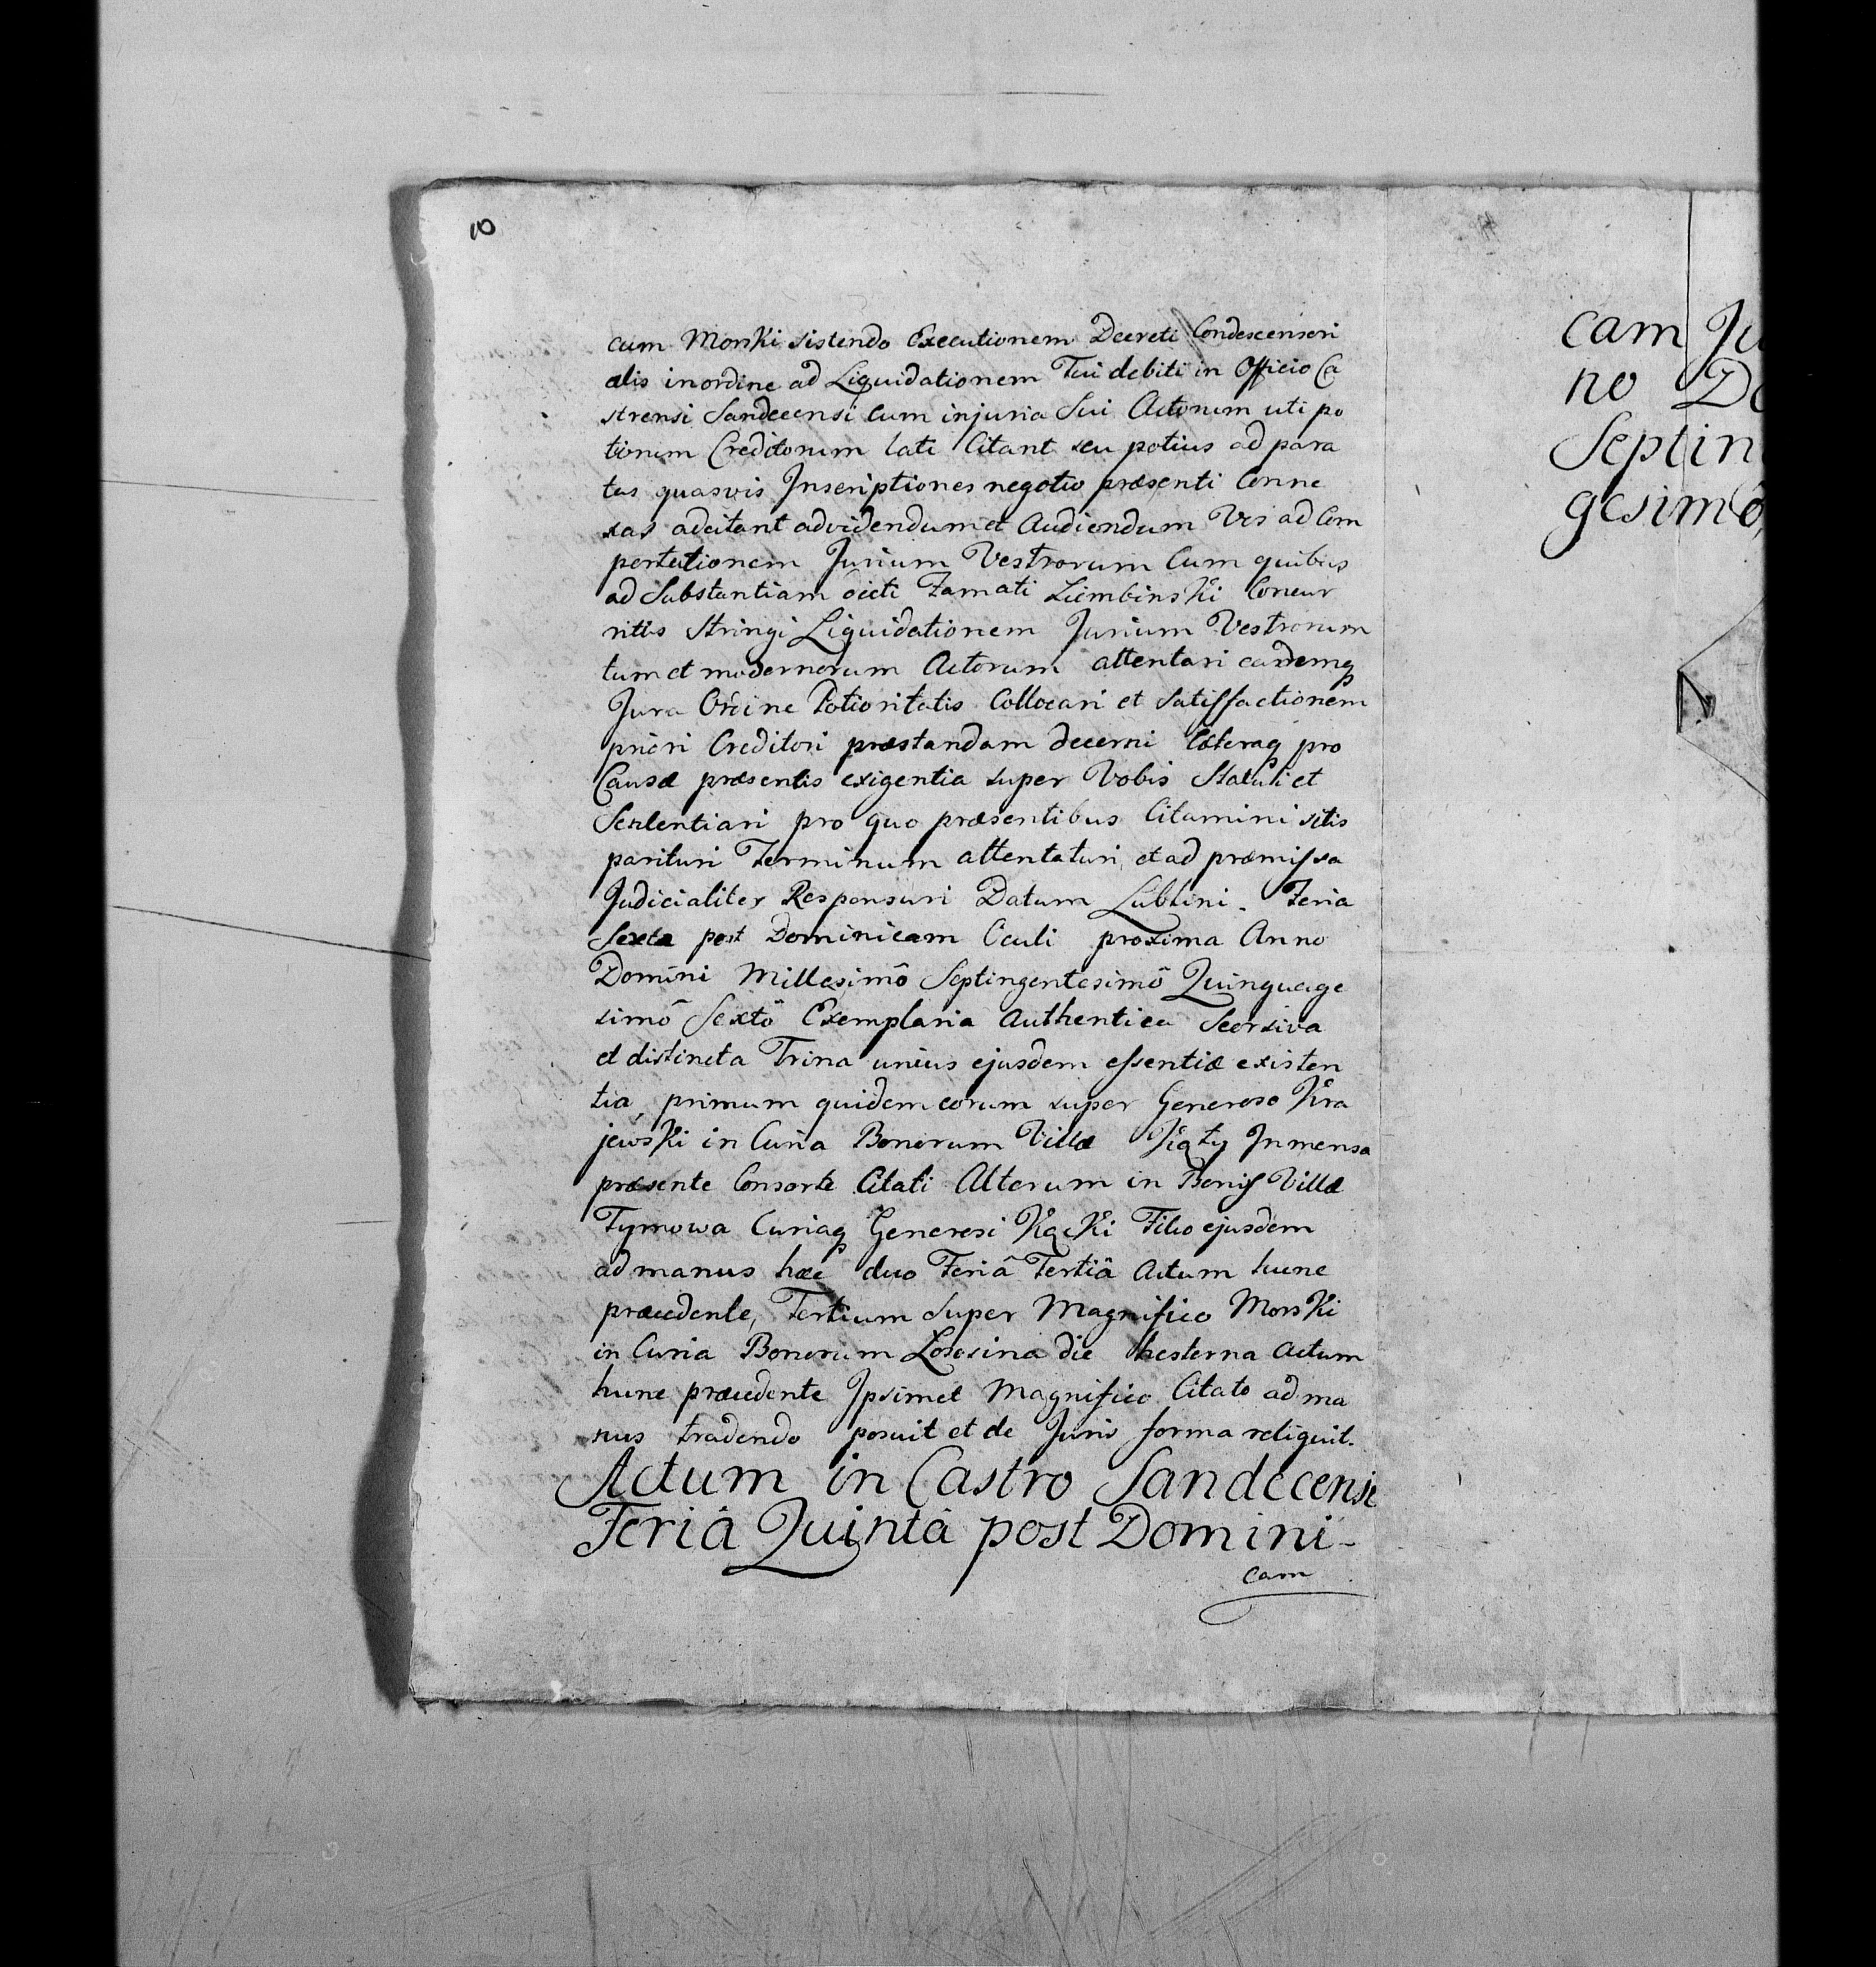 10
cum Morski sistendo Executionem Decreti Condescensori
alis in ordine ad Liquidationem Tui debiti in Officio Ca
strensi Sandecensi cum injuria Sui Actorum uti po
tiorum Creditorum lati Citant seu potius ad para
tas quasvis Inscriptiones negotio præsenti Conne
xas adcitant ad videndum et Audiendum Vos ad Com
portationem Jurium Vestrorum Cum quibus
ad Substantiam dicti Famati Ziembinski Concur
ritis Stringi Liquidationem Jurium Vestrorum
tum et modernorum Actorum attentari eademq
Jura Ordine Potioritatis Collocari et Satisfactionem
priori Creditori præstandam decerni Cæteraq pro
Causæ præsentis exigentia super Vobis Statui et
Sententiari pro quo præsentibus Citamini sitis
parituri Terminum attentaturi et ad præmissa
Judicialiter Responsuri Datum Lublini. Feria
Sexta post Dominicam Oculi proxima Anno
Domini Millesimô Septingentesimô Quinquage
simô Sextô Exemplaria Authentica Seorsiva
et distincta Trina unius ejusdem essentiæ existen
tia, primum quidem eorum super Generoso Kra
jewski in Curia Bonorum Villæ Kąty In mensa
præsente Consorte Citati Alterum in Bonis Villæ
Tymowa Curiaq Generosi Kącki Filio ejusdem
ad manus hæc duo Feriâ Tertiâ Actum hunc
præcedente, Tertium Super Magnifico Morski
in Curia Bonorum Łososina die hesterna Actum
hunc præcedente Ipsimet Magnifico Citato ad ma
nus tradendo posuit et de Juris forma reliquit.
Actum in Castro Sandecensi
Feriâ Quintâ post Domini-
cam
cam Ju
no Do
Septin
gesimô,